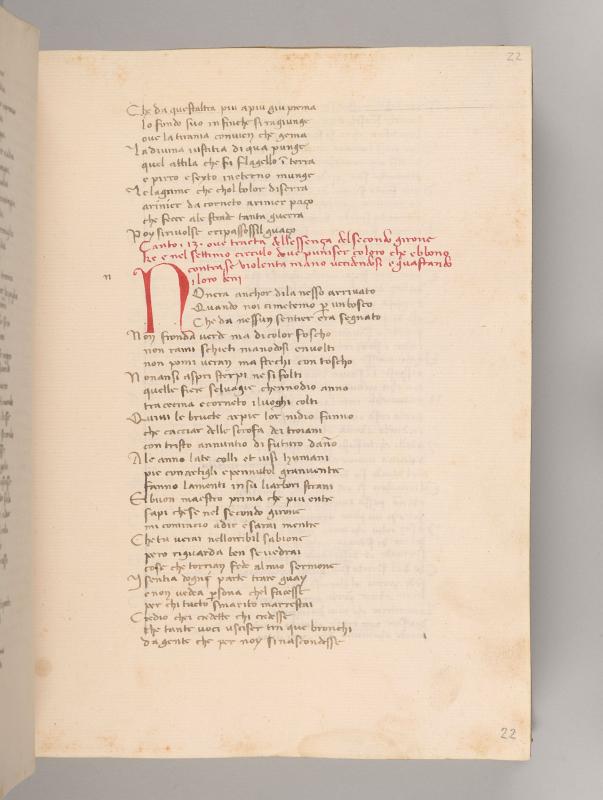 22
Che da questaltra piu apiu giu prema
lo fondo suo infinche si ragiunge
oue la tirania conuien che gema
La diuina iustitia di qua punge
quel attila che fu flagello ī terra
e pirro e sexto in eterno munge
Le lagrime che chol bolor diserra
arinier da corneto arinier paço
che fecer ale strade tanta guerra
Poy si riuolse eripassossil guaço
Canto .13. oue tracta dellessença del secondo girone
ke e nel settimo circulo doue puniser coloro che ebbono
contra se uiolenta mano uccidendosi e guastando
i loro beni
n
Nonera anchor di la nesso arriuato
Quando noi ci metemo per un bosco
Che da nessun sentier era segnato
Non fronda uerde ma di color foscho
non rami schieti ma nodosi enuolti
non pomi ueran ma stechi con toscho
Nonansi aspri sterpi ne si folti
quelle fiere seluagie chennodio anno
tra cecina e corneto i luoghi colti
Quiui le bructe arpie lor nidio fanno
che cacciar delle strofa dei troiani
con tristo annuntio di futuro dāno
Ale anno late colli et uisi humani
pie con artigli e pennutol gran uentre
fanno lamenti in su li arbori strani
El buon maestro prima che piu entre
sapi che se nel secondo girone
mi comincio a dir e sarai mentre
Che tu uerai nellorribil sabione
pero riguarda ben se uedrai
cose che torrian fede al mio sermone
Il sentia dogni parte trare guay
e non uedea persona chel facesse
per chi tucto smarito marrestai
Credio chei credette chi credesse
che tante uoci uscisser tra que bronchi
da gente che per noy si nascondesse
22